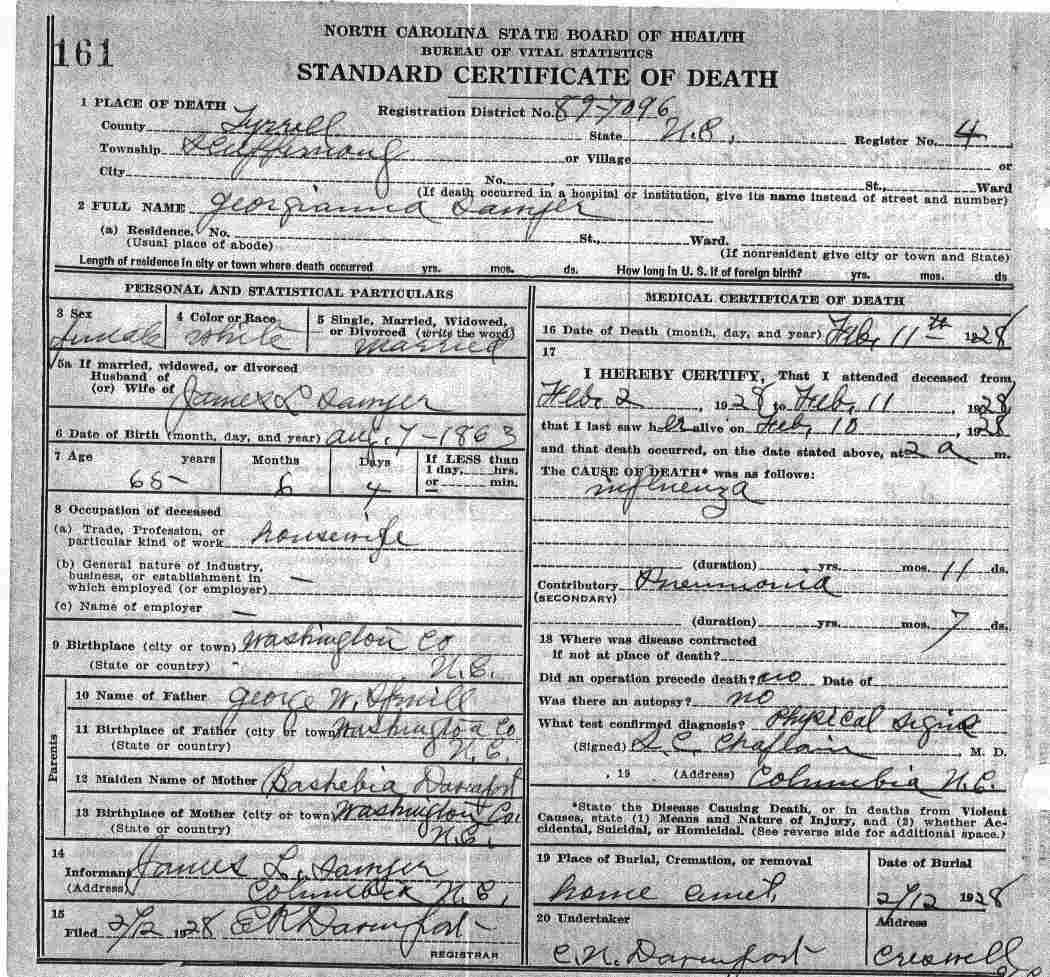 NORTH CAROLINA STATE BOARD OF HEALTH
BUREAU OF VITAL STATISTICS
161
STANDARD CERTIFICATE OF DEATH
1 PLACE OF DEATH Registration District No. 89-7096
County Tyrrell State N.C, Register No. 4
Township Scuppernong or Village or
City No. , St., Ward
(If death occurred in a hospital or institution, give its name instead of street and number)
2 FULL NAME Georgianna Sawyer
(a) Residence. No. St., Ward.
(Usual place of abode) (If nonresident give city or town and State)
Length of residence in city or town where death occurred yrs. mos. ds. How long in U. S. if of foreign birth? yrs. mos. ds
PERSONAL AND STATISTICAL PARTICULARS
3 Sex 4 Color or Race 5 Single, Married, Widowed,
or Divorced (write the word)
female white married
5a If married, widowed, or divorced
Husband of
(or) Wife of James L Sawyer
6 Date of Birth (month, day, and year) Aug. 7-1863
7 Age years Months Days If LESS than
1 day, hrs.
or min.
65 6 4
8 Occupation of deceased
(a) Trade, Profession, or
particular kind of work housewife
(b) General nature of industry,
business, or establishment in
which employed (or employer) —
(c) Name of employer —
9 Birthplace (city or town) Washington Co
(State or country) N.C.
Parents
10 Name of Father George W. Spruill
11 Birthplace of Father (city or town) Washington Co
(State or country) N.C.
12 Maiden Name of Mother Bashebia Davenport
13 Birthplace of Mother (city or town) Washington Co.
(State or country) N.C.
14
Informant James L. Sawyer
(Address) Columbia N.C,
15
Filed 2/12 1928 E R Davenport
REGISTRAR
MEDICAL CERTIFICATE OF DEATH
16 Date of Death (month, day, and year) Feb, 11th 1928
17
I HEREBY CERTIFY, That I attended deceased from
Feb. 2, 1928 to Feb, 11 1928
that I last saw her alive on Feb, 10, 1928
and that death occurred, on the date stated above, at 2 a m.
The CAUSE OF DEATH* was as follows:
influenza
(duration) yrs. mos. 11 ds.
Contributory Pneumonia
(SECONDARY)
(duration) yrs. mos. 7 ds.
18 Where was disease contracted
if not at place of death?
Did an operation precede death? no Date of
Was there an autopsy? no
What test confirmed diagnosis? Physical signs
(Signed) S. C. Chaplain M. D.
, 19 (Address) Columbia N.C.
*State the Disease Causing Death, or in deaths from Violent
Causes, state (1) Means and Nature of Injury, and (2) whether Ac-
cidental, Suicidal, or Homicidal. (See reverse side for additional space.)
19 Place of Burial, Cremation, or removal Date of Burial
home cemet, 2/12 1928
20 Undertaker Address
C. N. Davenport Creswell